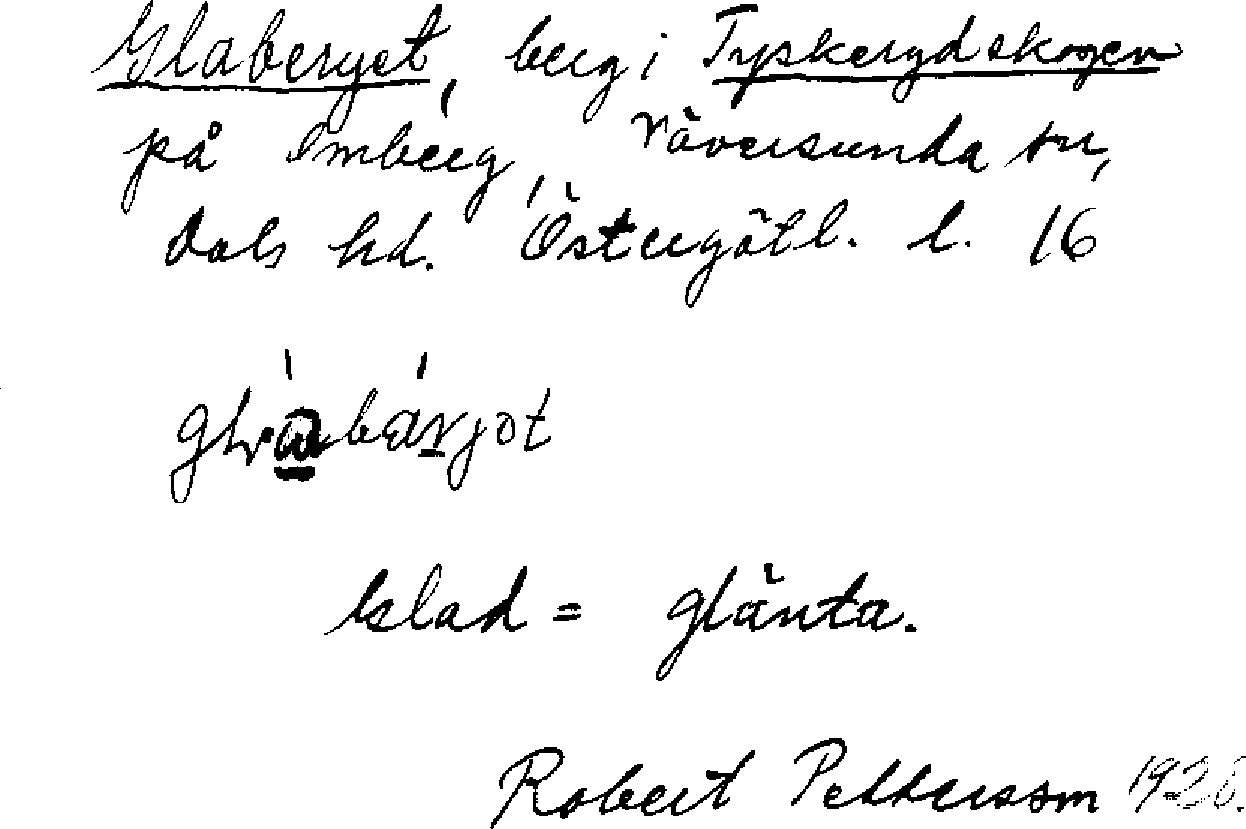 Glaberget, berg i Tyskerydskogen
på Omberg, Väversunda sn,
Dals hd. Östergötl. l. 16
Glad = glänta.
Robert Pettersson 1928.